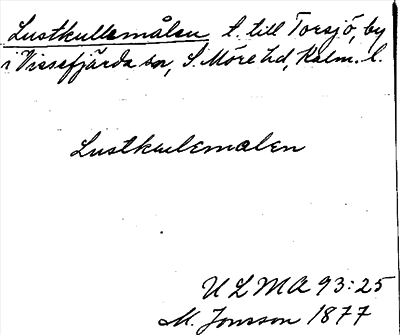 Lustkullemålen t. till Torsjö, by
i Vissefjärda sn, S. Möre hd, Kalm. l.
Lustkulemalen
ULMA 93:25
M. Jonsson 1877